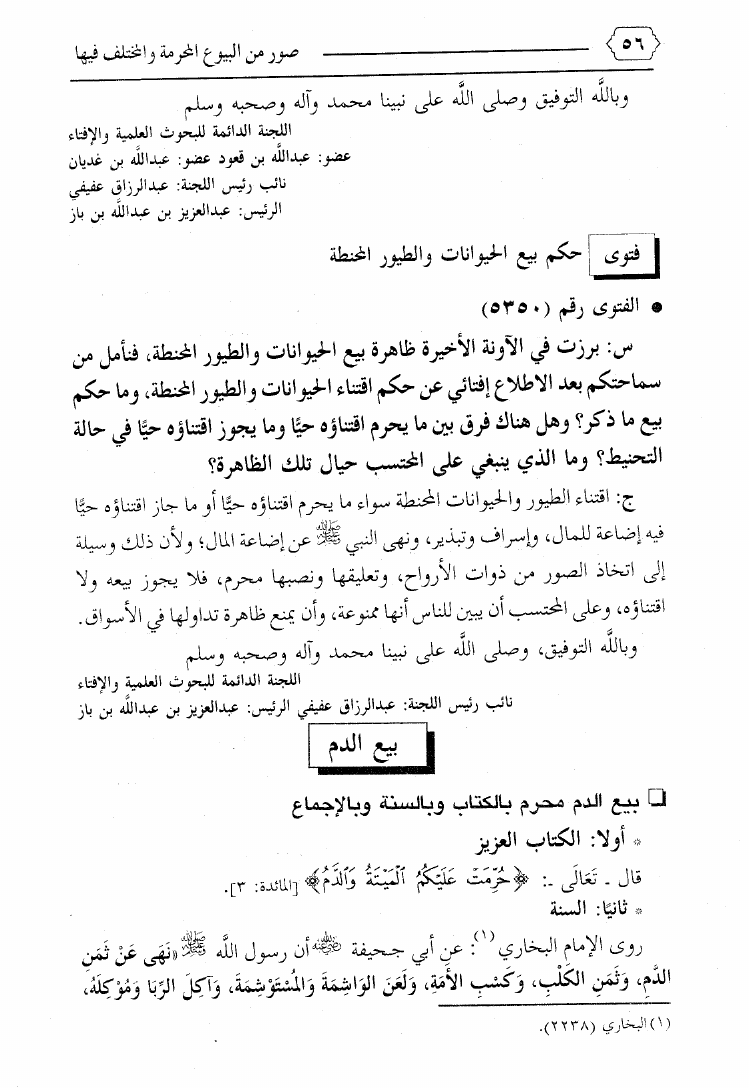 ٥٦ صور من البيوع المحرمة والمختلف فيها
وباللَّه التوفيق وصلى اللَّه على نبينا محمد وآله وصحبه وسلم
اللجنة الدائمة للبحوث العلمية والإفتاء
عضو: عبداللَّه بن قعود عضو: عبداللَّه بن غديان
نائب رئيس اللجنة: عبدالرزاق عفيفي
الرئيس: عبدالعزيز بن عبداللَّه بن باز
فتوى حكم بيع الحيوانات والطيور المحنطة
● الفتوى رقم (٥٣٥٠)
س: برزت في الآونة الأخيرة ظاهرة بيع الحيوانات والطيور المحنطة، فنأمل من
سماحتكم بعد الاطلاع إفتائي عن حكم اقتناء الحيوانات والطيور المحنطة، وما حكم
بيع ما ذكر؟ وهل هناك فرق بين ما يحرم اقتناؤه حيًّا وما يجوز اقتناؤه حيًّا في حالة
التحنيط؟ وما الذي ينبغي على المحتسب حيال تلك الظاهرة؟
ج: اقتناء الطيور والحيوانات المحنطة سواء ما يحرم اقتناؤه حيًّا أو ما جاز اقتناؤه حيًّا
فيه إضاعة للمال، وإسراف وتبذير، ونهى النبي ﷺ عن إضاعة المال؛ ولأن ذلك وسيلة
إلى اتخاذ الصور من ذوات الأرواح، وتعليقها ونصبها محرم، فلا يجوز بيعه ولا
اقتناؤه، وعلى المحتسب أن يبين للناس أنها ممنوعة، وأن يمنع ظاهرة تداولها في الأسواق.
وباللَّه التوفيق، وصلى اللَّه على نبينا محمد وآله وصحبه وسلم
اللجنة الدائمة للبحوث العلمية والإفتاء
نائب رئيس اللجنة: عبدالرزاق عفيفي الرئيس: عبدالعزيز بن عبداللَّه بن باز
بيع الدم
❑ بيع الدم محرم بالكتاب وبالسنة وبالإجماع
* أولا: الكتاب العزيز
قال ـ تَعَالَى ـ: ﴿حُرِّمَتْ عَلَيْكُمُ ٱلْمَيْتَةُ وَٱلدَّمُ﴾ [المائدة: ٣].
* ثانيًا: السنة
روى الإمام البخاري(١): عن أبي جحيفة رضي الله عنه أن رسول اللَّه ﷺ «نَهَى عَنْ ثَمَنِ
الدَّمِ، وَثَمَنِ الكَلْبِ، وَكَسْبِ الأَمَةِ، وَلَعَنَ الوَاشِمَةَ وَالمُسْتَوْشِمَةَ، وَآكِلَ الرِّبَا وَمُوْكِلَهُ،
(١) البخاري (٢٢٣٨).